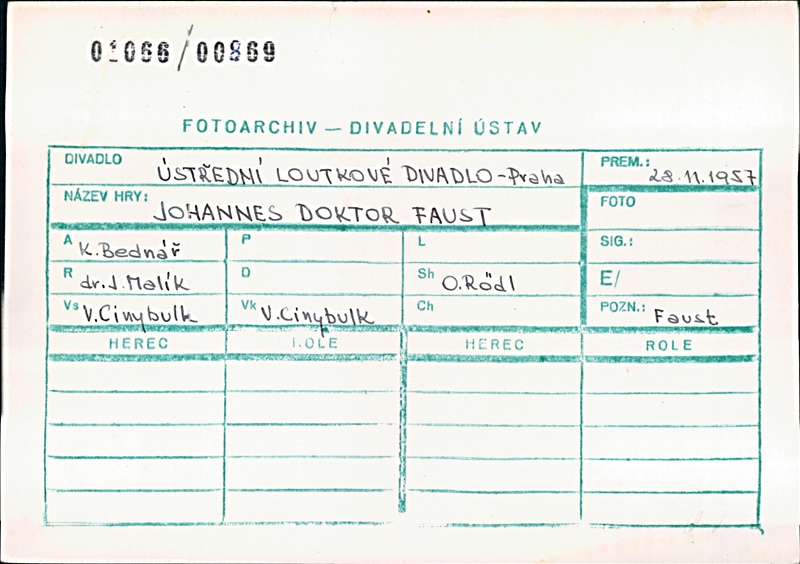 01066/00869
FOTOARCHIV — DIVADELNÍ ÚSTAV
DIVADLO ÚSTŘEDNÍ LOUTKOVÉ DIVADLO-Praha
PREM.: 28.11.1957
NÁZEV HRY: JOHANNES DOKTOR FAUST
FOTO
A K.Bednář P L SIG.:
R dr.J.Malík D Sh O.Rödl E/
Vs V.Cinybulk Vk V.Cinybulk Ch POZN.: Faust
HEREC ROLE HEREC ROLE